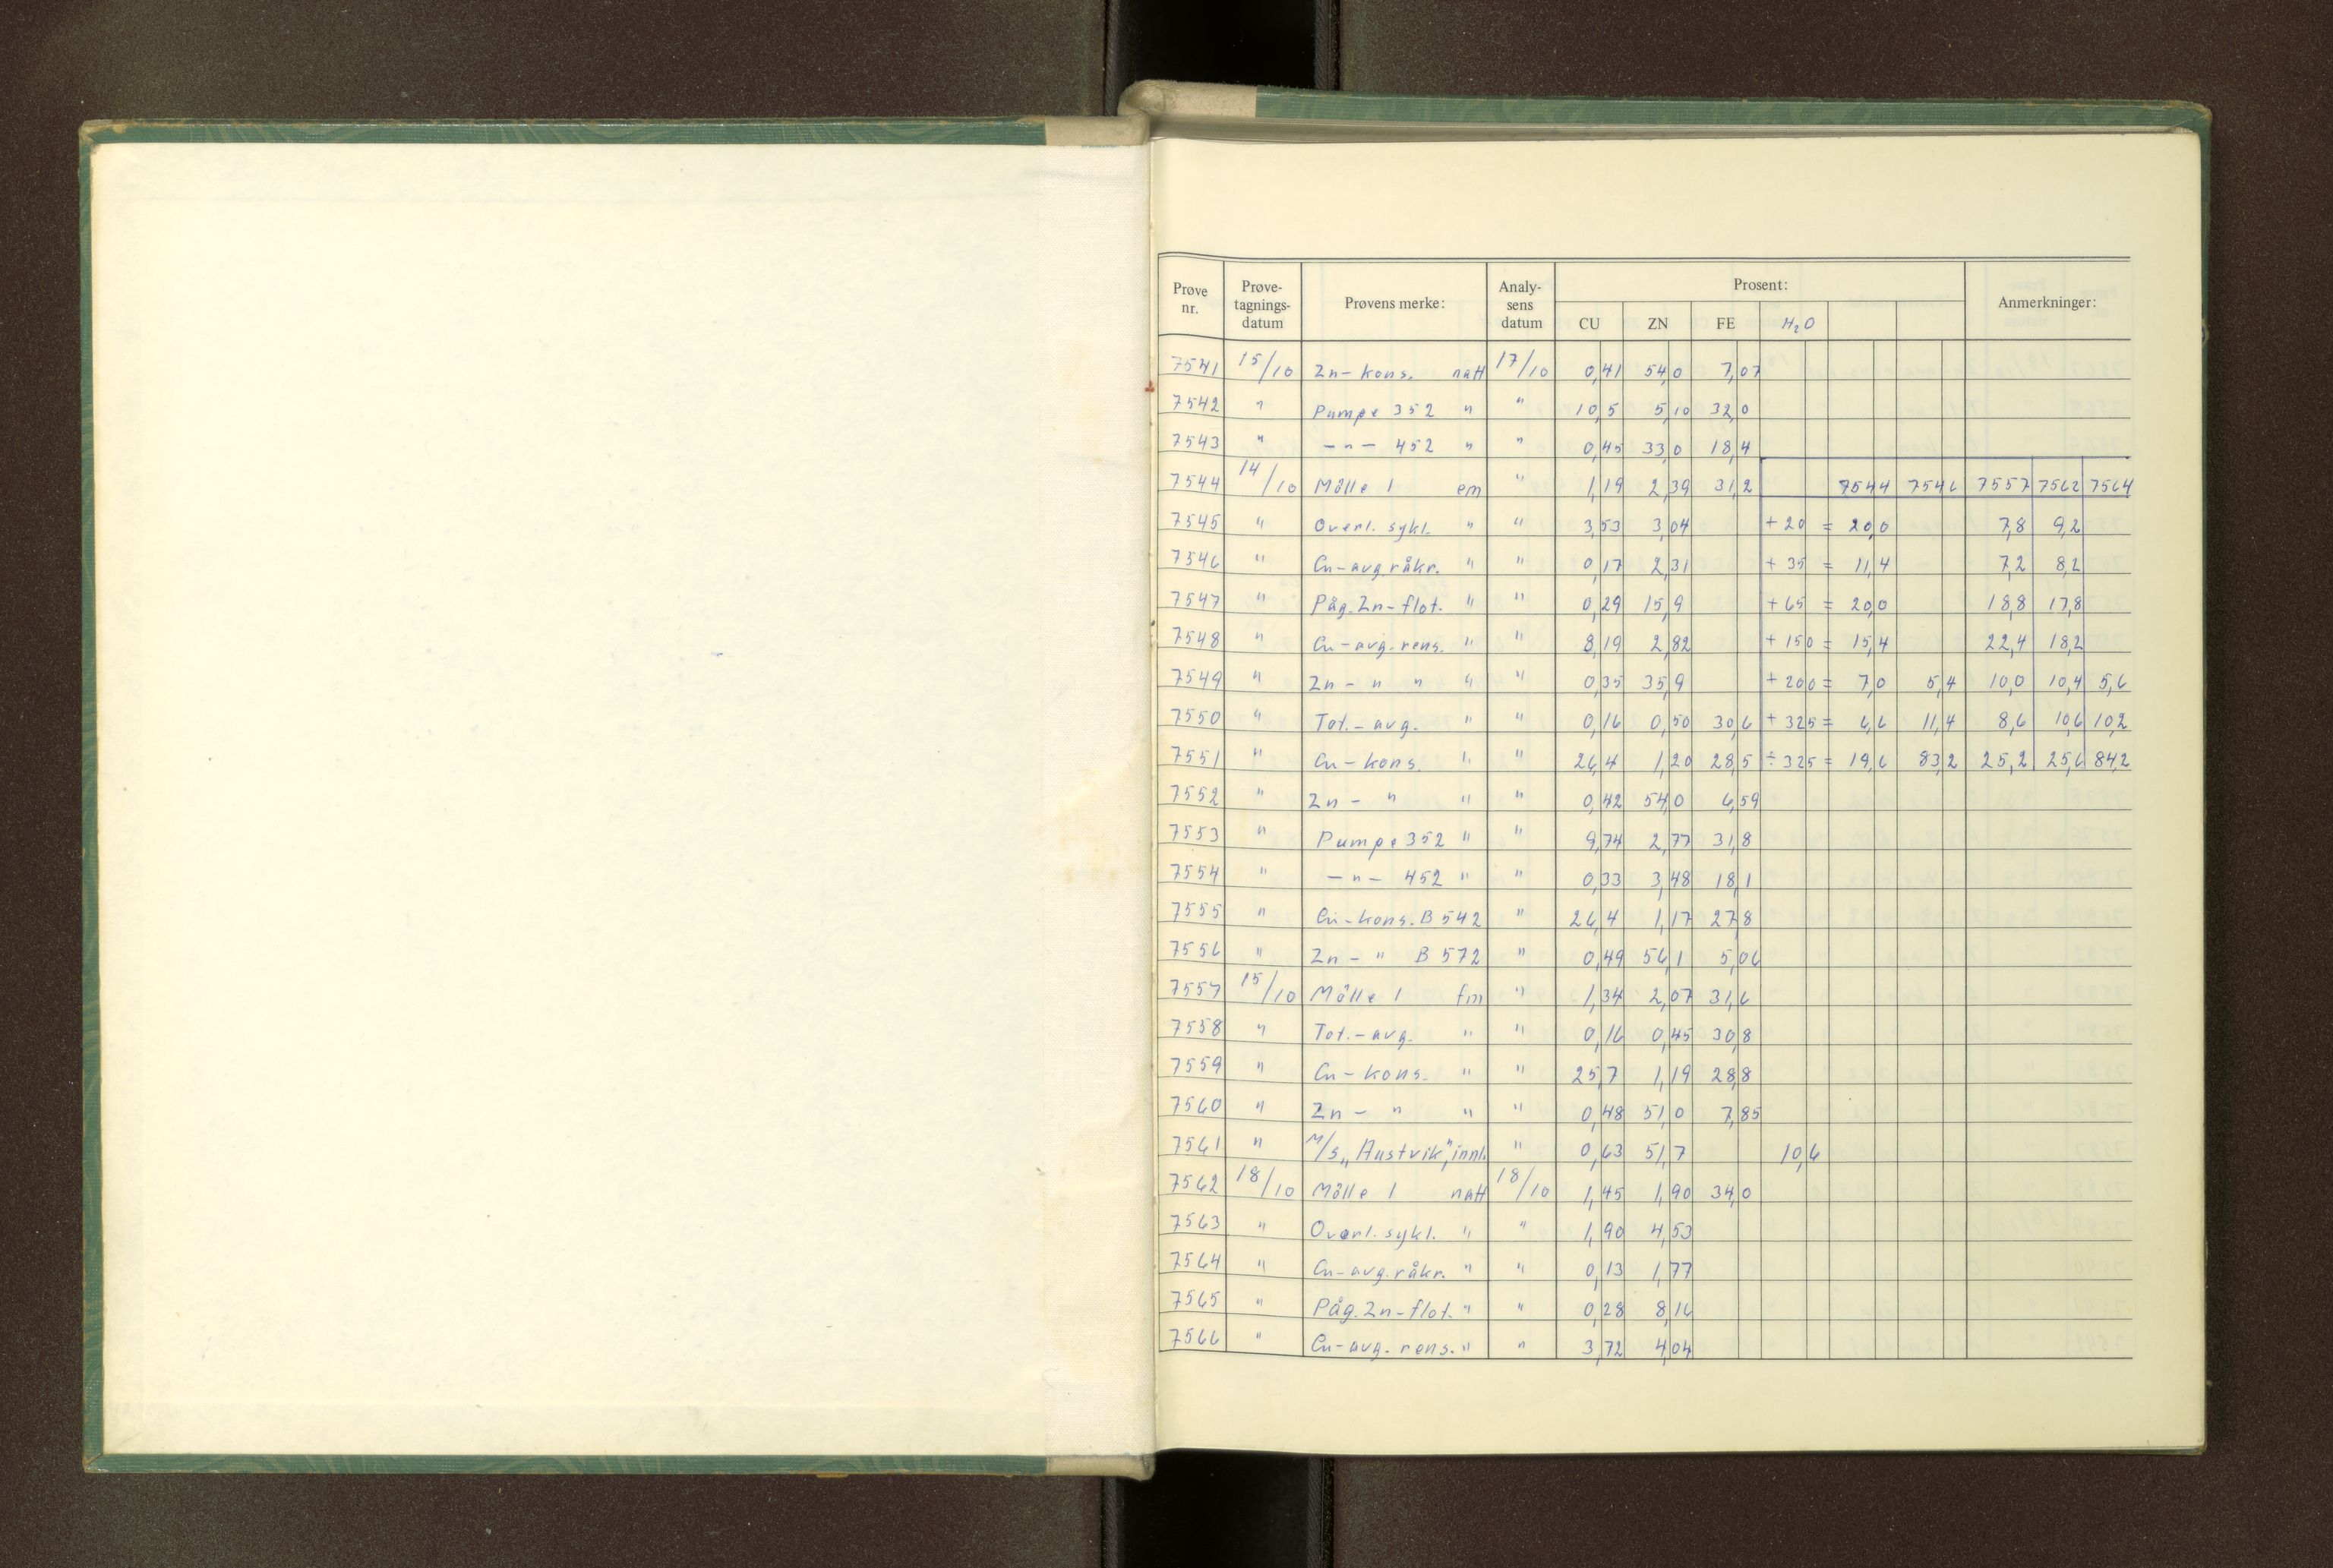 Prøve nr. Prøve-tagnings-datum Prøvens merke: Analy-sens datum Prosent: Anmerkninger:
CU ZN FE H2O
7541 15/10 Zn-kons. natt 17/10 0,41 54,0 7,07
7542 " Pumpe 352 " " 10,5 5,10 32,0
7543 " -"- 452 " " 0,45 33,0 18,4
7544 14/10 Mölle 1 em " 1,19 2,39 31,2 7544 7546 7557 7562 7564
7545 " Overl. sykl. " " 3,53 3,04 +20 = 20,0 7,8 9,2
7546 " Cu-avg.råkr. " " 0,17 2,31 +35 = 11,4 7,2 8,2
7547 " Påg.Zn-flot. " " 0,29 15,9 +65 = 20,0 18,8 17,8
7548 " Cu-avg.rens. " " 8,19 2,82 +150 = 15,4 22,4 18,2
7549 " Zn- " " " " 0,35 35,9 +200 = 7,0 5,4 10,0 10,4 5,6
7550 " Tot.-avg. " " 0,16 0,50 30,6 +325 = 6,6 11,4 8,6 10,6 10,2
7551 " Cu-kons. " " 26,4 1,20 28,5 ÷325 = 19,6 83,2 25,2 25,6 84,2
7552 " Zn- " " " 0,42 54,0 6,59
7553 " Pumpe 352 " " 9,74 2,77 31,8
7554 " -"- 452 " " 0,33 3,48 18,1
7555 " Cu-kons. B 542 " 26,4 1,17 27,8
7556 " Zn- " B 572 " 0,49 56,1 5,06
7557 15/10 Mölle 1 fm " 1,34 2,07 31,6
7558 " Tot.-avg. " " 0,16 0,45 30,8
7559 " Cu-kons. " " 25,7 1,19 28,8
7560 " Zn- " " " 0,48 51,0 7,85
7561 " M/s „Austvik", innl. " 0,63 51,7 10,6
7562 18/10 Mölle 1 natt 18/10 1,45 1,90 34,0
7563 " Overl. sykl. " " 1,90 4,53
7564 " Cu-avg.råkr. " " 0,13 1,77
7565 " Påg.Zn-flot. " " 0,28 8,16
7566 " Cu-avg.rens. " " 3,72 4,04